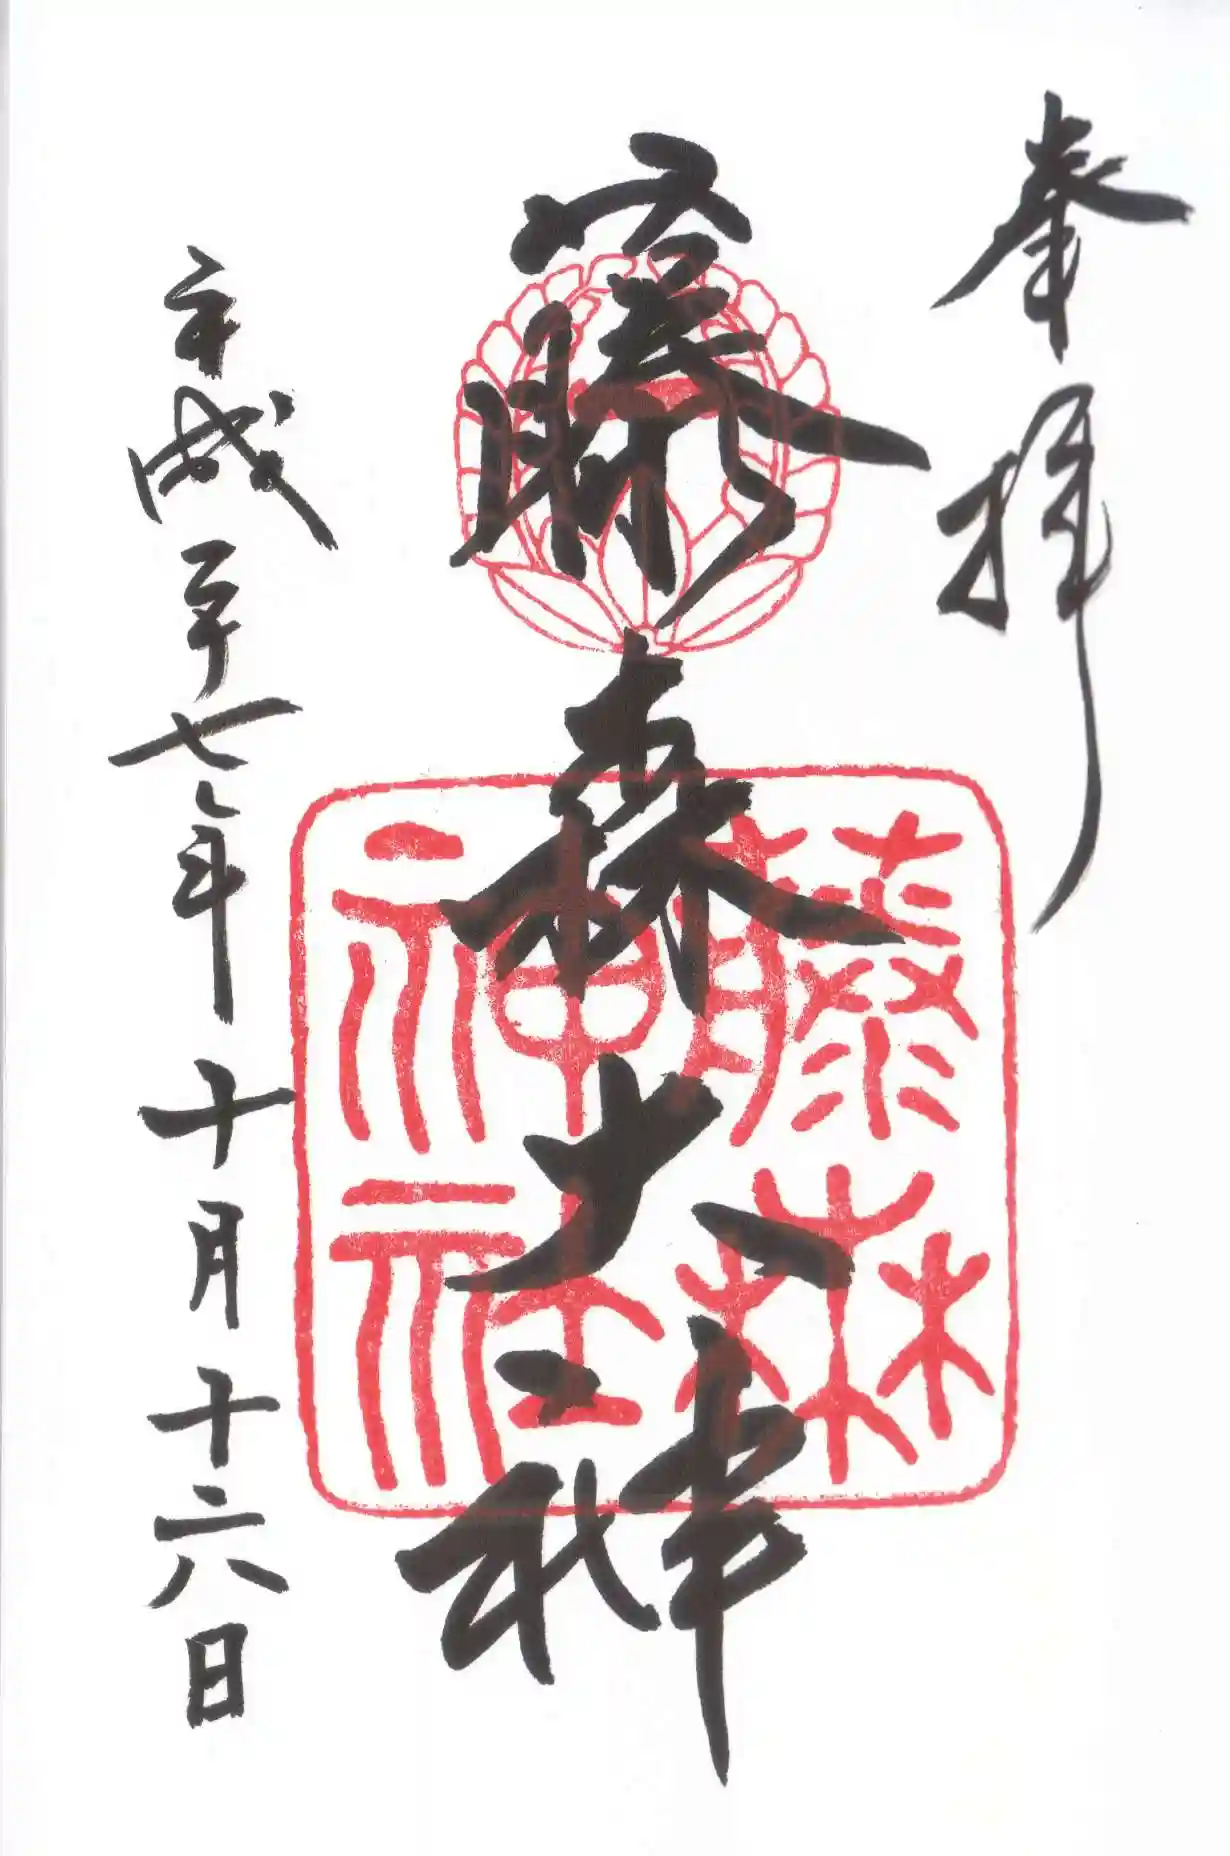 奉拝
藤森大神
藤森
神社
平成二十七年十月十六日